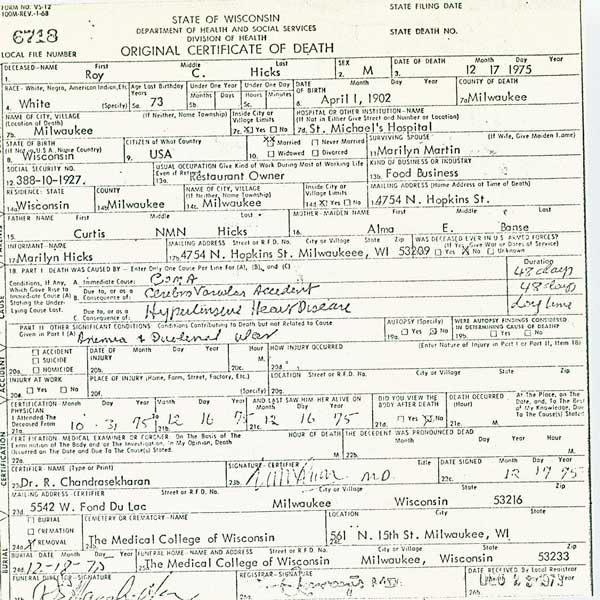 FORM NO. VS-12
100M-REV.-1-68
STATE OF WISCONSIN
STATE FILING DATE
DEPARTMENT OF HEALTH AND SOCIAL SERVICES
DIVISION OF HEALTH
6718
LOCAL FILE NUMBER
ORIGINAL CERTIFICATE OF DEATH
STATE DEATH NO.
DECEASED-NAME First Middle Last SEX DATE OF DEATH Month Day Year
1. Roy C. Hicks 2. M 3. 12 17 1975
RACE- White, Negro, American Indian, Etc. Age Last Birthday Years Under One Year Months Days Under One Day Hours Minutes DATE OF BIRTH Month Day Year COUNTY OF DEATH
4. White (Specify) 5a. 73 5b. 5c. 6. April 1, 1902 7a Milwaukee
NAME OF CITY, VILLAGE (Location of Death) (If Neither, Name Township) Inside City or Village Limits HOSPITAL OR OTHER INSTITUTION-NAME (If Not in Either Give Street and Number or Location)
7b. Milwaukee 7c. X Yes No 7d. St. Michael's Hospital
STATE OF BIRTH (If Not in U.S.A. Name Country) Citizen of What Country Married Never Married Widowed Divorced SURVIVING SPOUSE (If Wife, Give Maiden Name)
8. Wisconsin 9. USA 10. 11 Marilyn Martin
SOCIAL SECURITY NO. USUAL OCCUPATION Give Kind of Work During Most of Working Life Even if Retired KIND OF BUSINESS OR INDUSTRY
12. 388-10-1927. 13a. Restaurant Owner 13b. Food Business
RESIDENCE: STATE COUNTY NAME OF CITY, VILLAGE (If Neither, Name Township) Inside City or Village Limits MAILING ADDRESS (Home Address at Time of Death)
14a. Wisconsin 14b. Milwaukee 14c. Milwaukee 14d. X Yes No 4754 N. Hopkins St.
FATHER NAME First Middle Last MOTHER-MAIDEN NAME First Middle Last
15. Curtis NMN Hicks 16. Alma E. Banse
INFORMANT-NAME MAILING ADDRESS Street or R.F.D. No. City or Village State Zip WAS DECEASED EVER IN U.S. ARMED FORCES? (If Yes, Give War or Dates of Service)
17a Marilyn Hicks 17b. 4754 N. Hopkins St. Milwaukeee, WI 53209 Yes X No Unknown
18. PART I DEATH WAS CAUSED BY - Enter Only One Cause Per Line For (A), (B), and (C) Duration
Conditions, If Any, Which Gave Rise to Immediate Cause (A) Stating the Underlying Cause Last.
A. Immediate Cause: 48 days
B. Due to, or as a Consequence of: Cerebro Vascular Accident 48 days
C. Due to, or as a Consequence of: Hypertensive Heart Disease
PART II OTHER SIGNIFICANT CONDITIONS Conditions Contributing to Death but not Related to Cause Given in Part I (A) AUTOPSY (Specify) WERE AUTOPSY FINDINGS CONSIDERED IN DETERMINING CAUSE OF DEATH?
Anemia & Duodenal Ulcer 19a. Yes No 19b. Yes No
ACCIDENT SUICIDE HOMICIDE DATE OF INJURY Month Day Year Hour HOW INJURY OCCURRED (Enter Nature of Injury in Part I or Part II, Item 18)
20a. 20b. 20c. M. 20d.
INJURY AT WORK PLACE OF INJURY (Home, Farm, Street, Factory, Etc.) LOCATION Street or R.F.D. No. City or Village State
20e. Yes No 20f. (Specify) 20g.
CERTIFICATION- PHYSICIAN I Attended The Deceased From Month Day Year AND LAST SAW HIM HER ALIVE ON Month Day Year DID YOU VIEW THE BODY AFTER DEATH DEATH OCCURRED (Hour) At the Place, on the Date, and, To the Best of my Knowledge, Due To the Cause(s) Stated
21a. 10. 3, 75 to 21b. 12 16 75 21c. 12 16 75 21d. Yes No 21e. M.
CERTIFICATION- MEDICAL EXAMINER OR CORONER. On The Basis of The Examination of The Body and/or The Investigation, In My Opinion, Death Occurred on The Date and Due To The Cause(s) Stated. HOUR OF DEATH THE DECEDENT WAS PRONOUNCED DEAD Month Day Year Hour
22a. M. 22b. M.
CERTIFIER-NAME (Type or Print) SIGNATURE-CERTIFIER Degree or Title DATE SIGNED Month Day Year
23a Dr. R. Chandrasekharan 23b. M.D. 23c. 12 17 75
MAILING ADDRESS-CERTIFIER Street or R.F.D. No. City or Village State Zip
23d. 5542 W. Fond Du Lac Milwaukee Wisconsin 53216
BURIAL CREMATION REMOVAL CEMETERY OR CREMATORY-NAME LOCATION City or Village State
24a. X 24b. The Medical College of Wisconsin 24c. 561 N. 15th St. Milwaukee, WI
BURIAL DATE Month Day Year FUNERAL HOME-NAME AND ADDRESS Street or R.F.D. No. City or Village State Zip
24d. 12-18-75 25a The Medical College of Wisconsin Milwaukee, Wisconsin 53233
FUNERAL DIRECTOR-SIGNATURE REGISTRAR-SIGNATURE DATE RECEIVED By Local Registrar